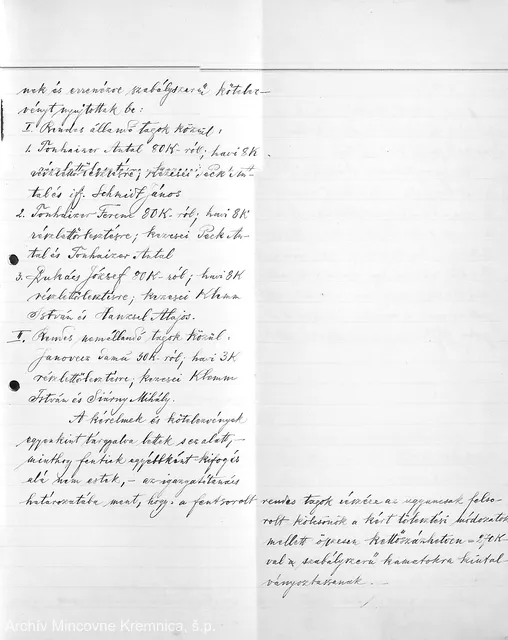 nek és errenézve szabályszerű kötelez-
vényt nyujtottak be:
I. Rendes állandó tagok közül:
1. Tonhaizer Antal 80K-ról; havi 8K
részlettörlesztésre; kezesei Peck An-
tal és ifj. Schmidt János
2. Tonhaizer Ferenc 80K-ról; havi 8K
részlettörlesztésre; kezesei Peck An-
tal és Tonhaizer Antal
3. Lukács József 80K-ról; havi 8K
részlettörlesztésre; kezesei Klemm
István és Hanzsel Alajos.
II. Rendes nemállandó tagok közül:
Janovecz Samu 30K-ról; havi 3K
részlettörlesztésre; kezesei Klemm
István és Siárny Mihály.
A kérelmek és kötelezvények
egyenkint tárgyalva lettek s
minthogy fentiek egyébként kifogás
alá nem estek, - az igazgatótanács
határozatába ment, hogy: a fentsorolt
rendes tagok részére az ugyancsak felso-
rolt kölcsönök a kért törlesztési módozatok
mellett összesen kettőszázhetven = 270K
val szabályszerű kamatokra kiutal-
ványoztassanak. -
Archív Mincovne Kremnica, š.p.